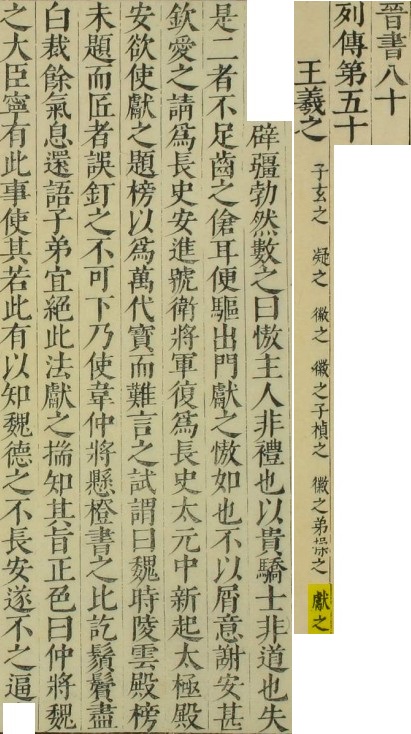 晉書八十
列傳第五十
王羲之 子玄之 凝之 徽之 徽之子楨之 徽之弟操之 獻之
辟彊勃然數之曰慠主人非禮也以貴驕士非道也失
是二者不足齒之傖耳便驅出門獻之慠如也不以屑意謝安甚
欽愛之請爲長史安進號衛將軍復爲長史太元中新起太極殿
安欲使獻之題榜以爲萬代寶而難言之試謂曰魏時陵雲殿榜
未題而匠者誤釘之不可下乃使韋仲將懸橙書之比訖鬚鬢盡
白裁餘氣息還語子弟宜絕此法獻之揣知其旨正色曰仲將魏
之大臣寧有此事使其若此有以知魏德之不長安遂不之逼